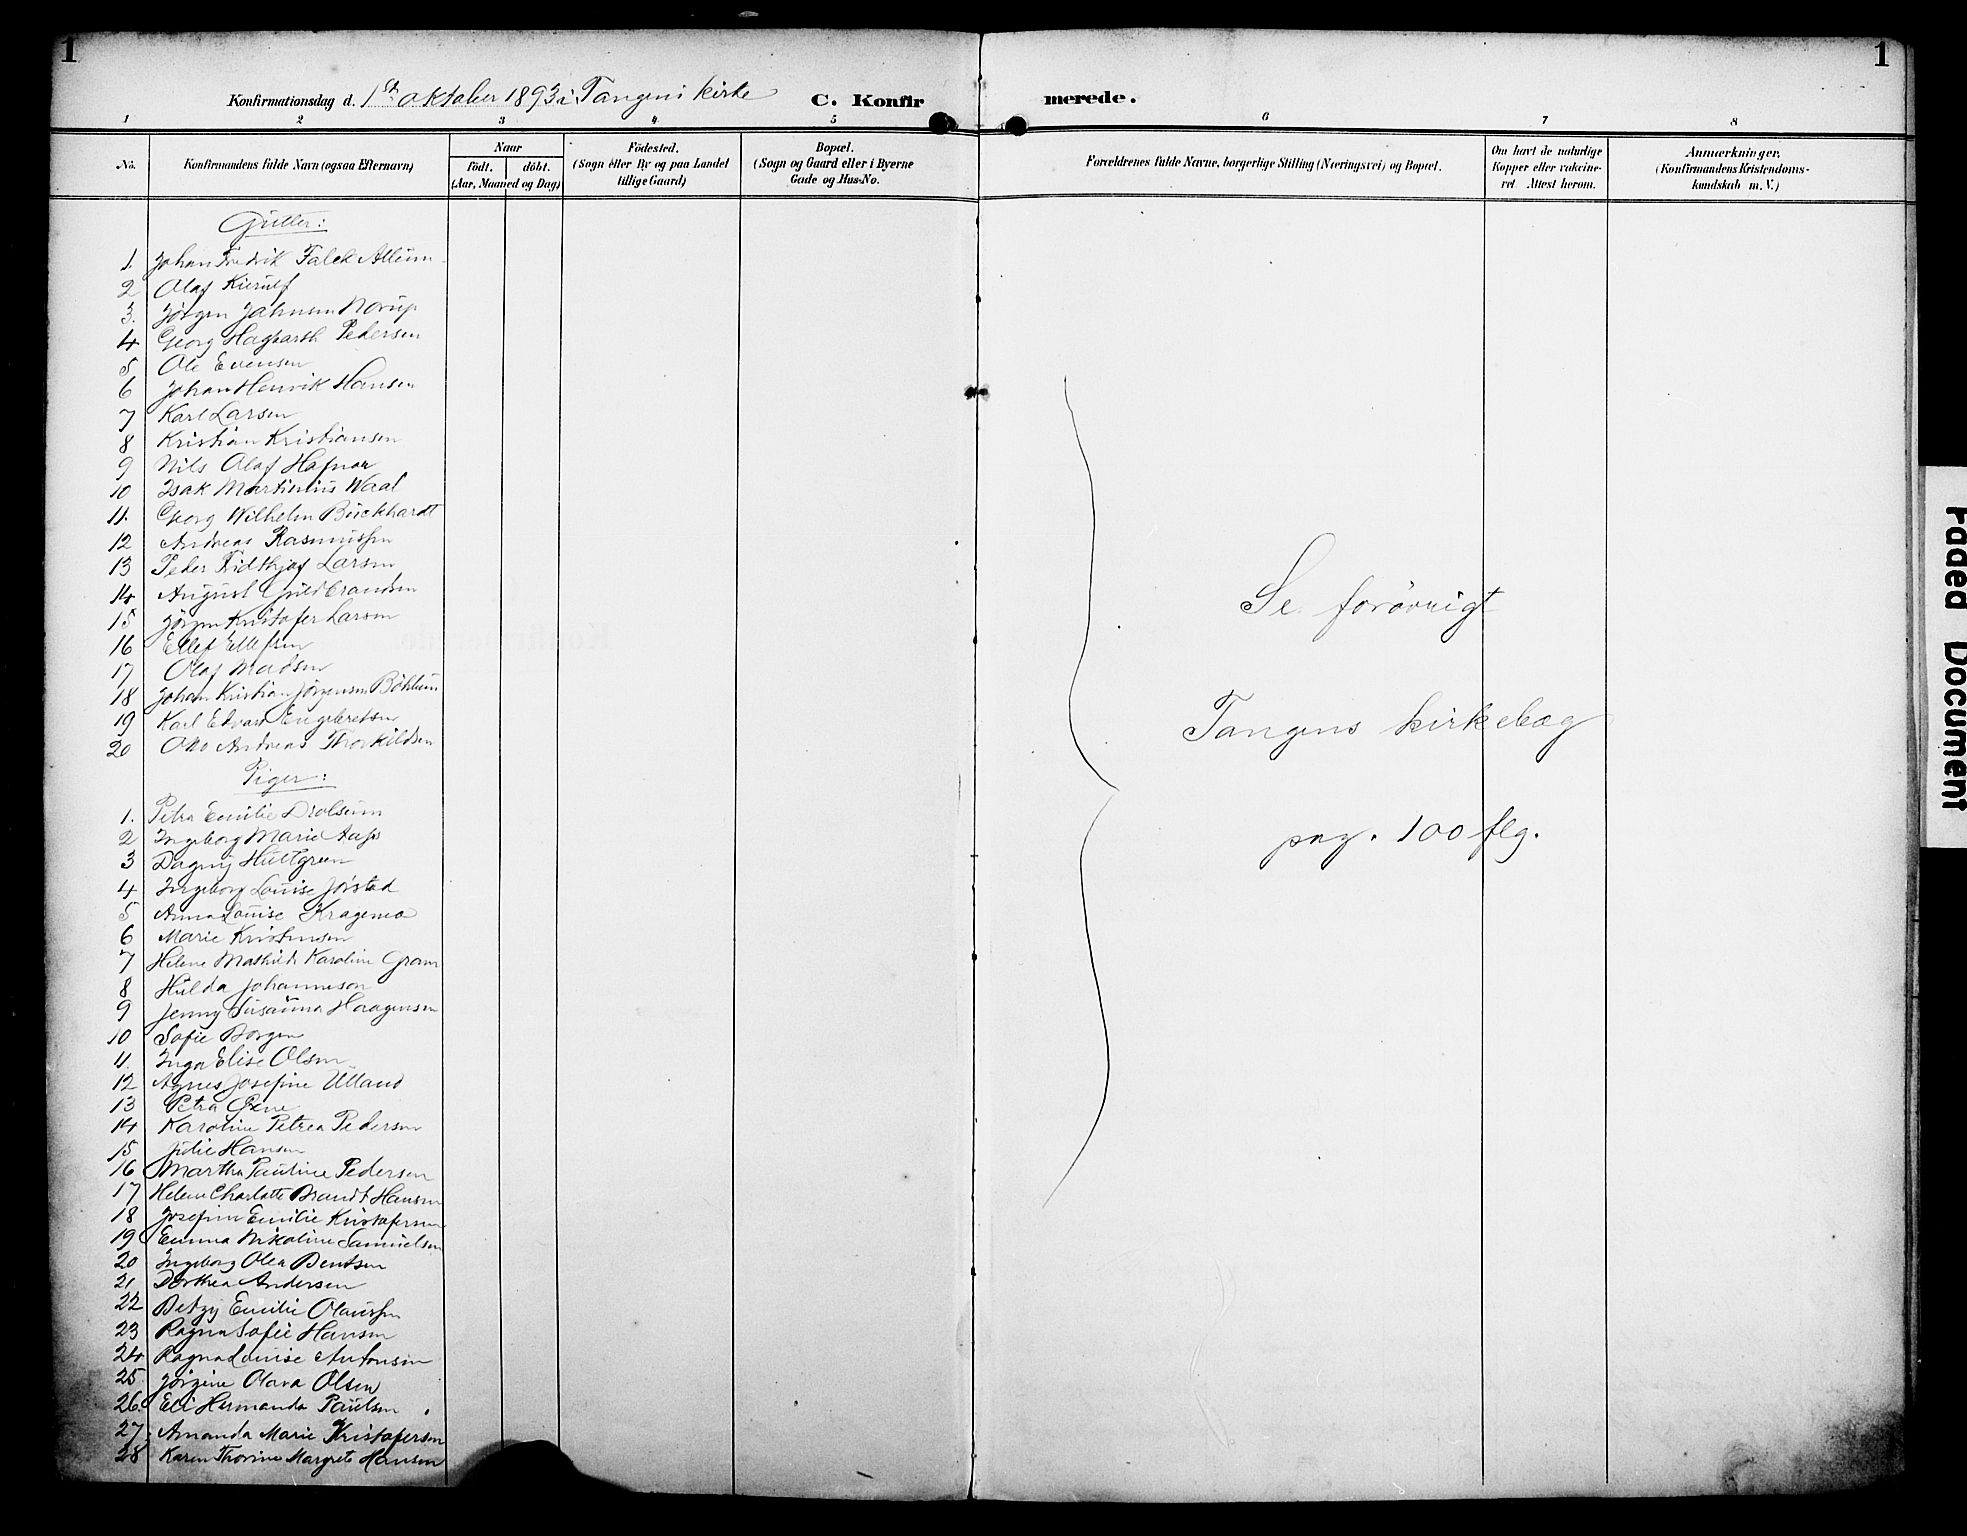 1
1
Konfirmationsdag d. 1ste oktober 1893 i Tangens kirke
C. Konfirmerede.
1 2 3 4 5 6 7 8
No.
Konfirmandens fulde Navn (ogsaa Efternavn)
Naar
født. døbt.
(Aar, Maaned og Dag)
Fødested.
(Sogn eller By og paa Landet
tillige Gaard)
Bopæl.
(Sogn og Gaard eller i Byerne
Gade og Hus-No.
Forældrenes fulde Navne, borgerlige Stilling (Næringsvei) og Bopæl.
Om havt de naturlige
Kopper eller vakcine-
ret Attest herom.
Anmærkninger,
(Konfirmandens Kristendoms-
kundskab m. V.)
Gutter:
1. Johan Fredrik Falck Alleum
2 Olaf Kierulf
3. Jørgen Johnsen Norup
4 Georg Hagbarth Pedersen
5 Ole Evensen
6 Johan Henrik Hansen
7 Karl Larsen
8 Kristian Kristiansen
9 Nils Olaf Hafnor
10 Isak Martinius Waal
11. Georg Wilhelm Buckhardt
12 Andreas Rasmussen
13 Peder Fridthjof Larsen
14 August Guldbrandsen
15 Jörgen Kristofer Larsen
16 Ellef Ellefsen
17 Olaf Madsen
18 Johan Kristian Jørgensen Böhlum
19 Karl Edvard Engebretsen
20 Otto Andreas Thorkildsen
Piger:
1. Petra Emilie Drolsum
2 Ingeborg Marie Aass
3 Dagny Hultgreen
4 Ingeborg Louise Jørstad
5 Anna Louise Kragemo
6 Marie Kristensen
7 Helene Mathilde Karoline Gram
8 Hulda Johanneson
9 Jenny Susanna Haagensen
10 Sofie Borgen
11. Inga Elise Olsen
12 Agnes Josefine Ulland
13 Petra
14 Karoline Petrea Pedersen
15 Julie Hansen
16 Martha Pauline Pedersen
17 Helene Charlotte Brandt Hansen
18 Josefine Emilie Kristofersen
19 Emma Nikoline Samuelsen
20 Ingeborg Olea Bentsen
21 Dorthea Andersen
22 Betzy Emilie Olaussen
23 Ragna Sofie Hansen
24 Ragna Louise Antonsen
25 Jörgine Olava Olsen
26 Eli Hermanda Paulsen
27 Amanda Marie Kristofersen
28 Karen Thorine Margrete Hansen
Se forövrigt
Tangens kirkebog
pag. 100 flg.
Faded Document